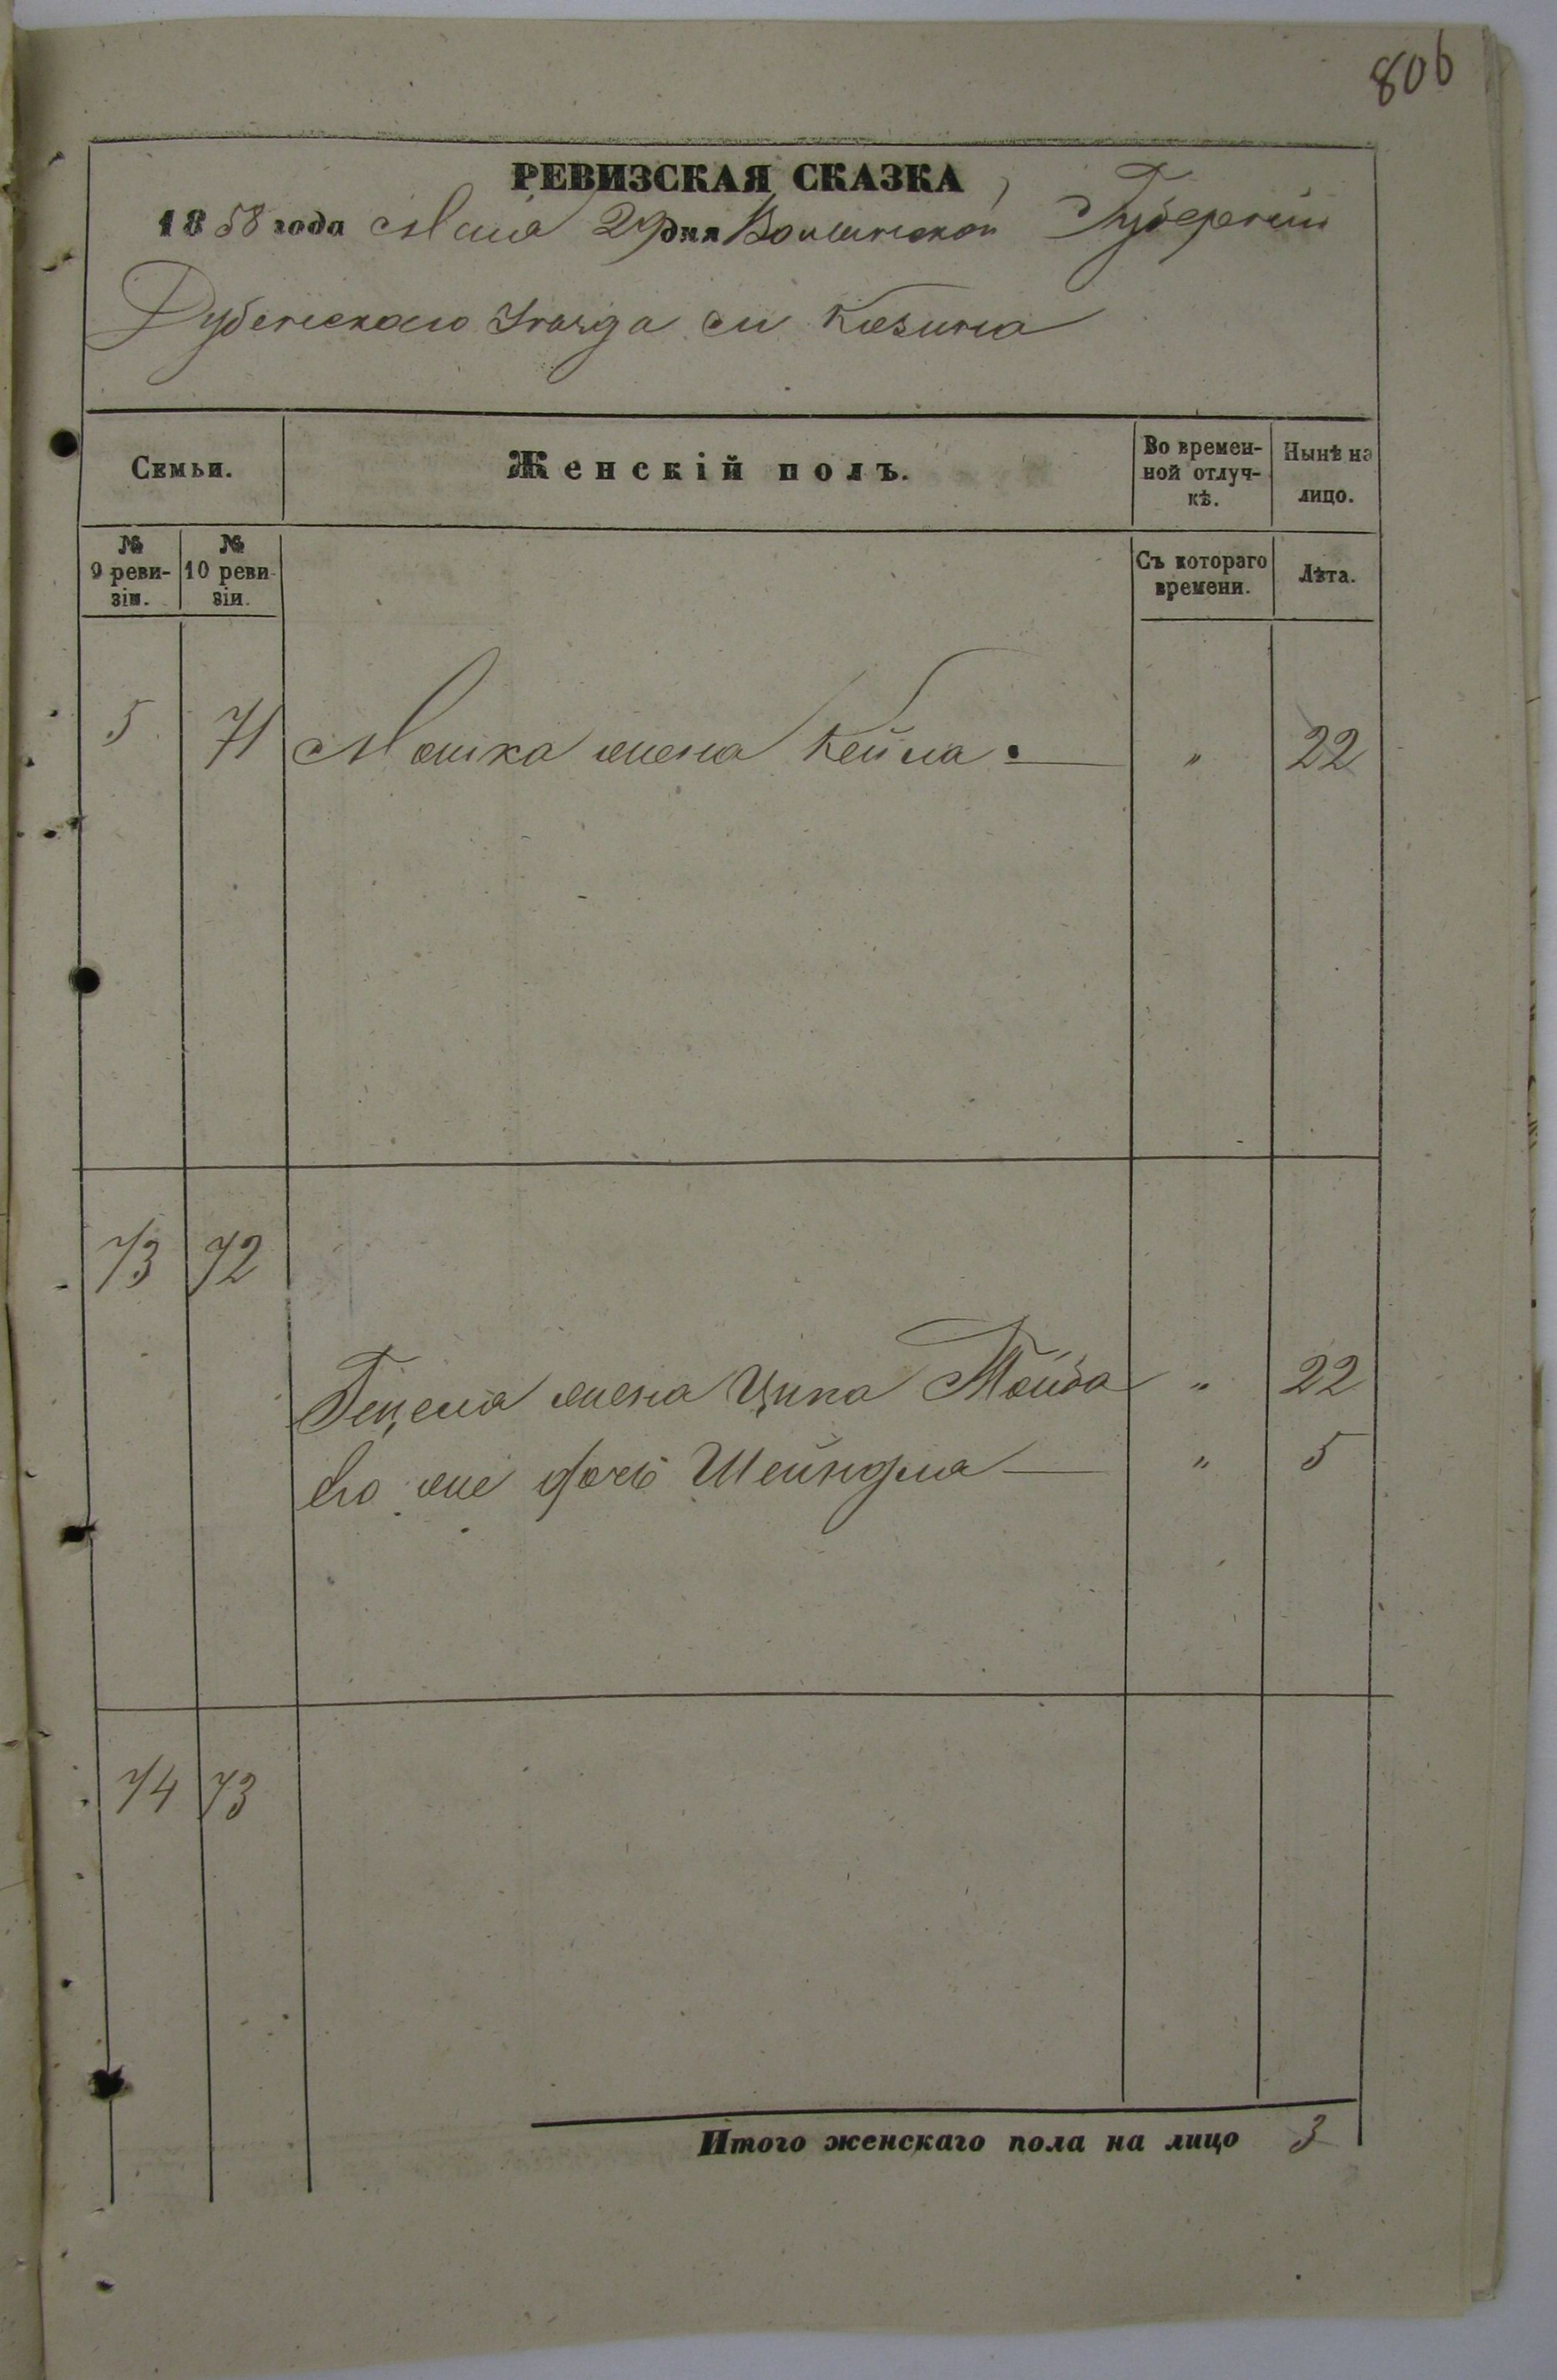 806
РЕВИЗСКАЯ СКАЗКА
1858 года Маія 29 дня Волынской Губерніи
Дубенскаго Уезда м Козина
Семьи.
Женскій полъ.
Во времен-
ной отлуч-
кѣ.
Нынѣ на
лицо.
№
9 реви-
зіи.
№
10 реви-
зіи.
Съ котораго
времени.
Лѣта.
5 71 Мошка жена Кейла " 22
73 72
Гецеля жена Ципа Тойба " 22
Его же дочь Шейндля " 5
74 73
Итого женскаго пола на лицо 3